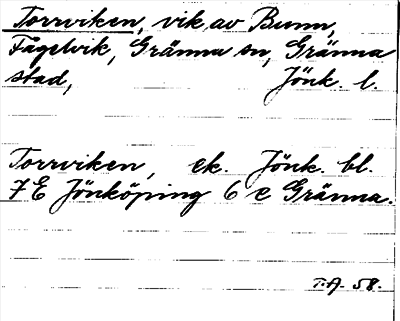 Torrviken, vik av Bunn,
Fågelvik, Gränna sn, Gränna
stad, Jönk. l.
Torrviken, ek. Jönk. bl.
7E Jönköping 6 e Gränna.
T.A. 58.